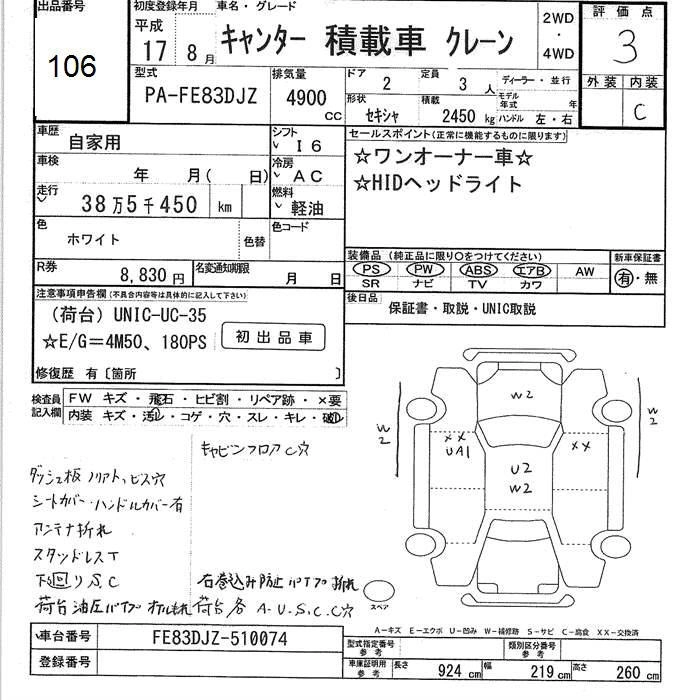 出品番号
106
初度登録年月 車名・グレード
平成
17 8月
キャンター 積載車 クレーン
2WD
・
4WD
評価点
3
外装 内装
C
型式
PA-FE83DJZ
排気量
4900
CC
ドア
2
定員
3 人
ディーラー・並行
モデル年式 年
形状
セキシャ
積載
2450 kg
ハンドル 左・右
車歴
自家用
シフト
I6
車検
年 月( 日)
冷房
AC
走行
38万5千450 km
燃料
軽油
色
ホワイト
色替
色コード
R券
8,830円
名変通知期限
月 日
セールスポイント(正常に機能するものに限ります)
☆ワンオーナー車☆
☆HIDヘッドライト
装備品 (純正品に限り○をつけてください)
PS PW ABS エアB AW
SR ナビ TV カワ
新車保証書
有・無
後日品
保証書・取説・UNIC取説
注意事項申告欄(不具合内容等は具体的に記入して下さい)
(荷台) UNIC-UC-35
☆E/G=4M50、180PS
初出品車
修復歴 有〔箇所 〕
検査員記入欄
FW キズ・飛石・ヒビ割・リペア跡・×要
内装 キズ・汚レ・コゲ・穴・スレ・キレ・破レ
キャビンフロアC穴
ダッシュ板 ビス穴
シートカバー・ハンドルカバー有
アンテナ折れ
スタッドレスT
下回りS.C
右巻込み防止パイプ折れ
荷台油圧パイプ オイルもれ
荷台各 A.U.S.C.C穴
W2
W2
W2
XX
UA1
XX
U2
W2
スペア
A-キズ E-エクボ U-凹み W-補修跡 S-サビ C-腐食 XX-交換済
車台番号
FE83DJZ-510074
登録番号
型式指定番号
参考
類別区分番号
参考
車庫証明用
参考
長さ 924 cm
幅 219 cm
高さ 260 cm